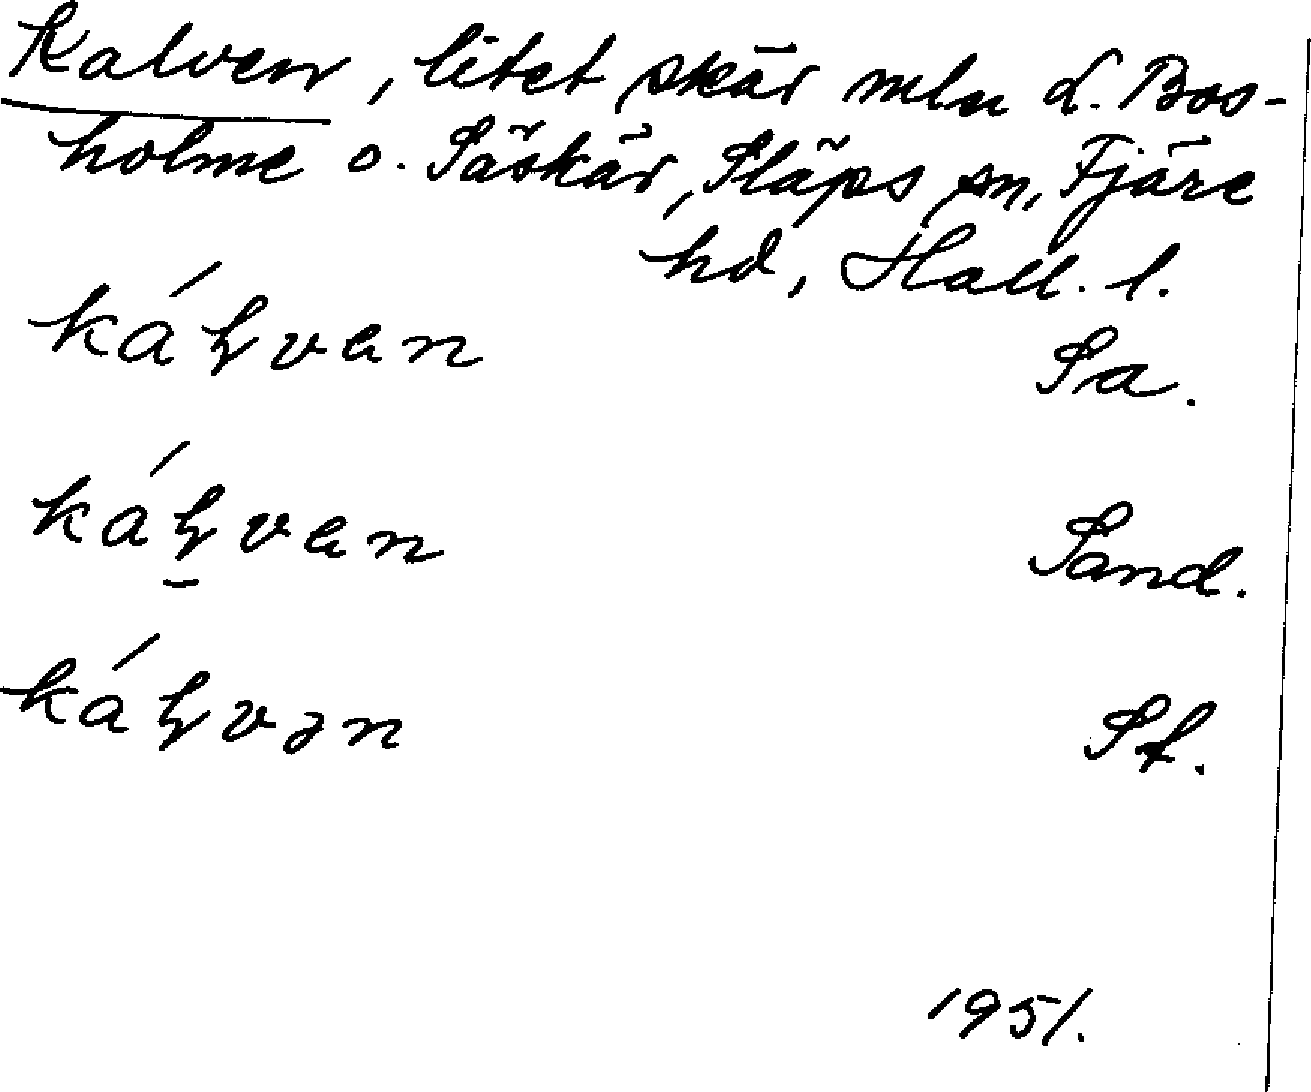 Kalven, litet skär mln L. Bos-
holme o. Säskär, Släps sn, Fjäre
hd, Hall. l.
káꞎven Sa.
káꞎven Sand.
káꞎvən St.
1951.